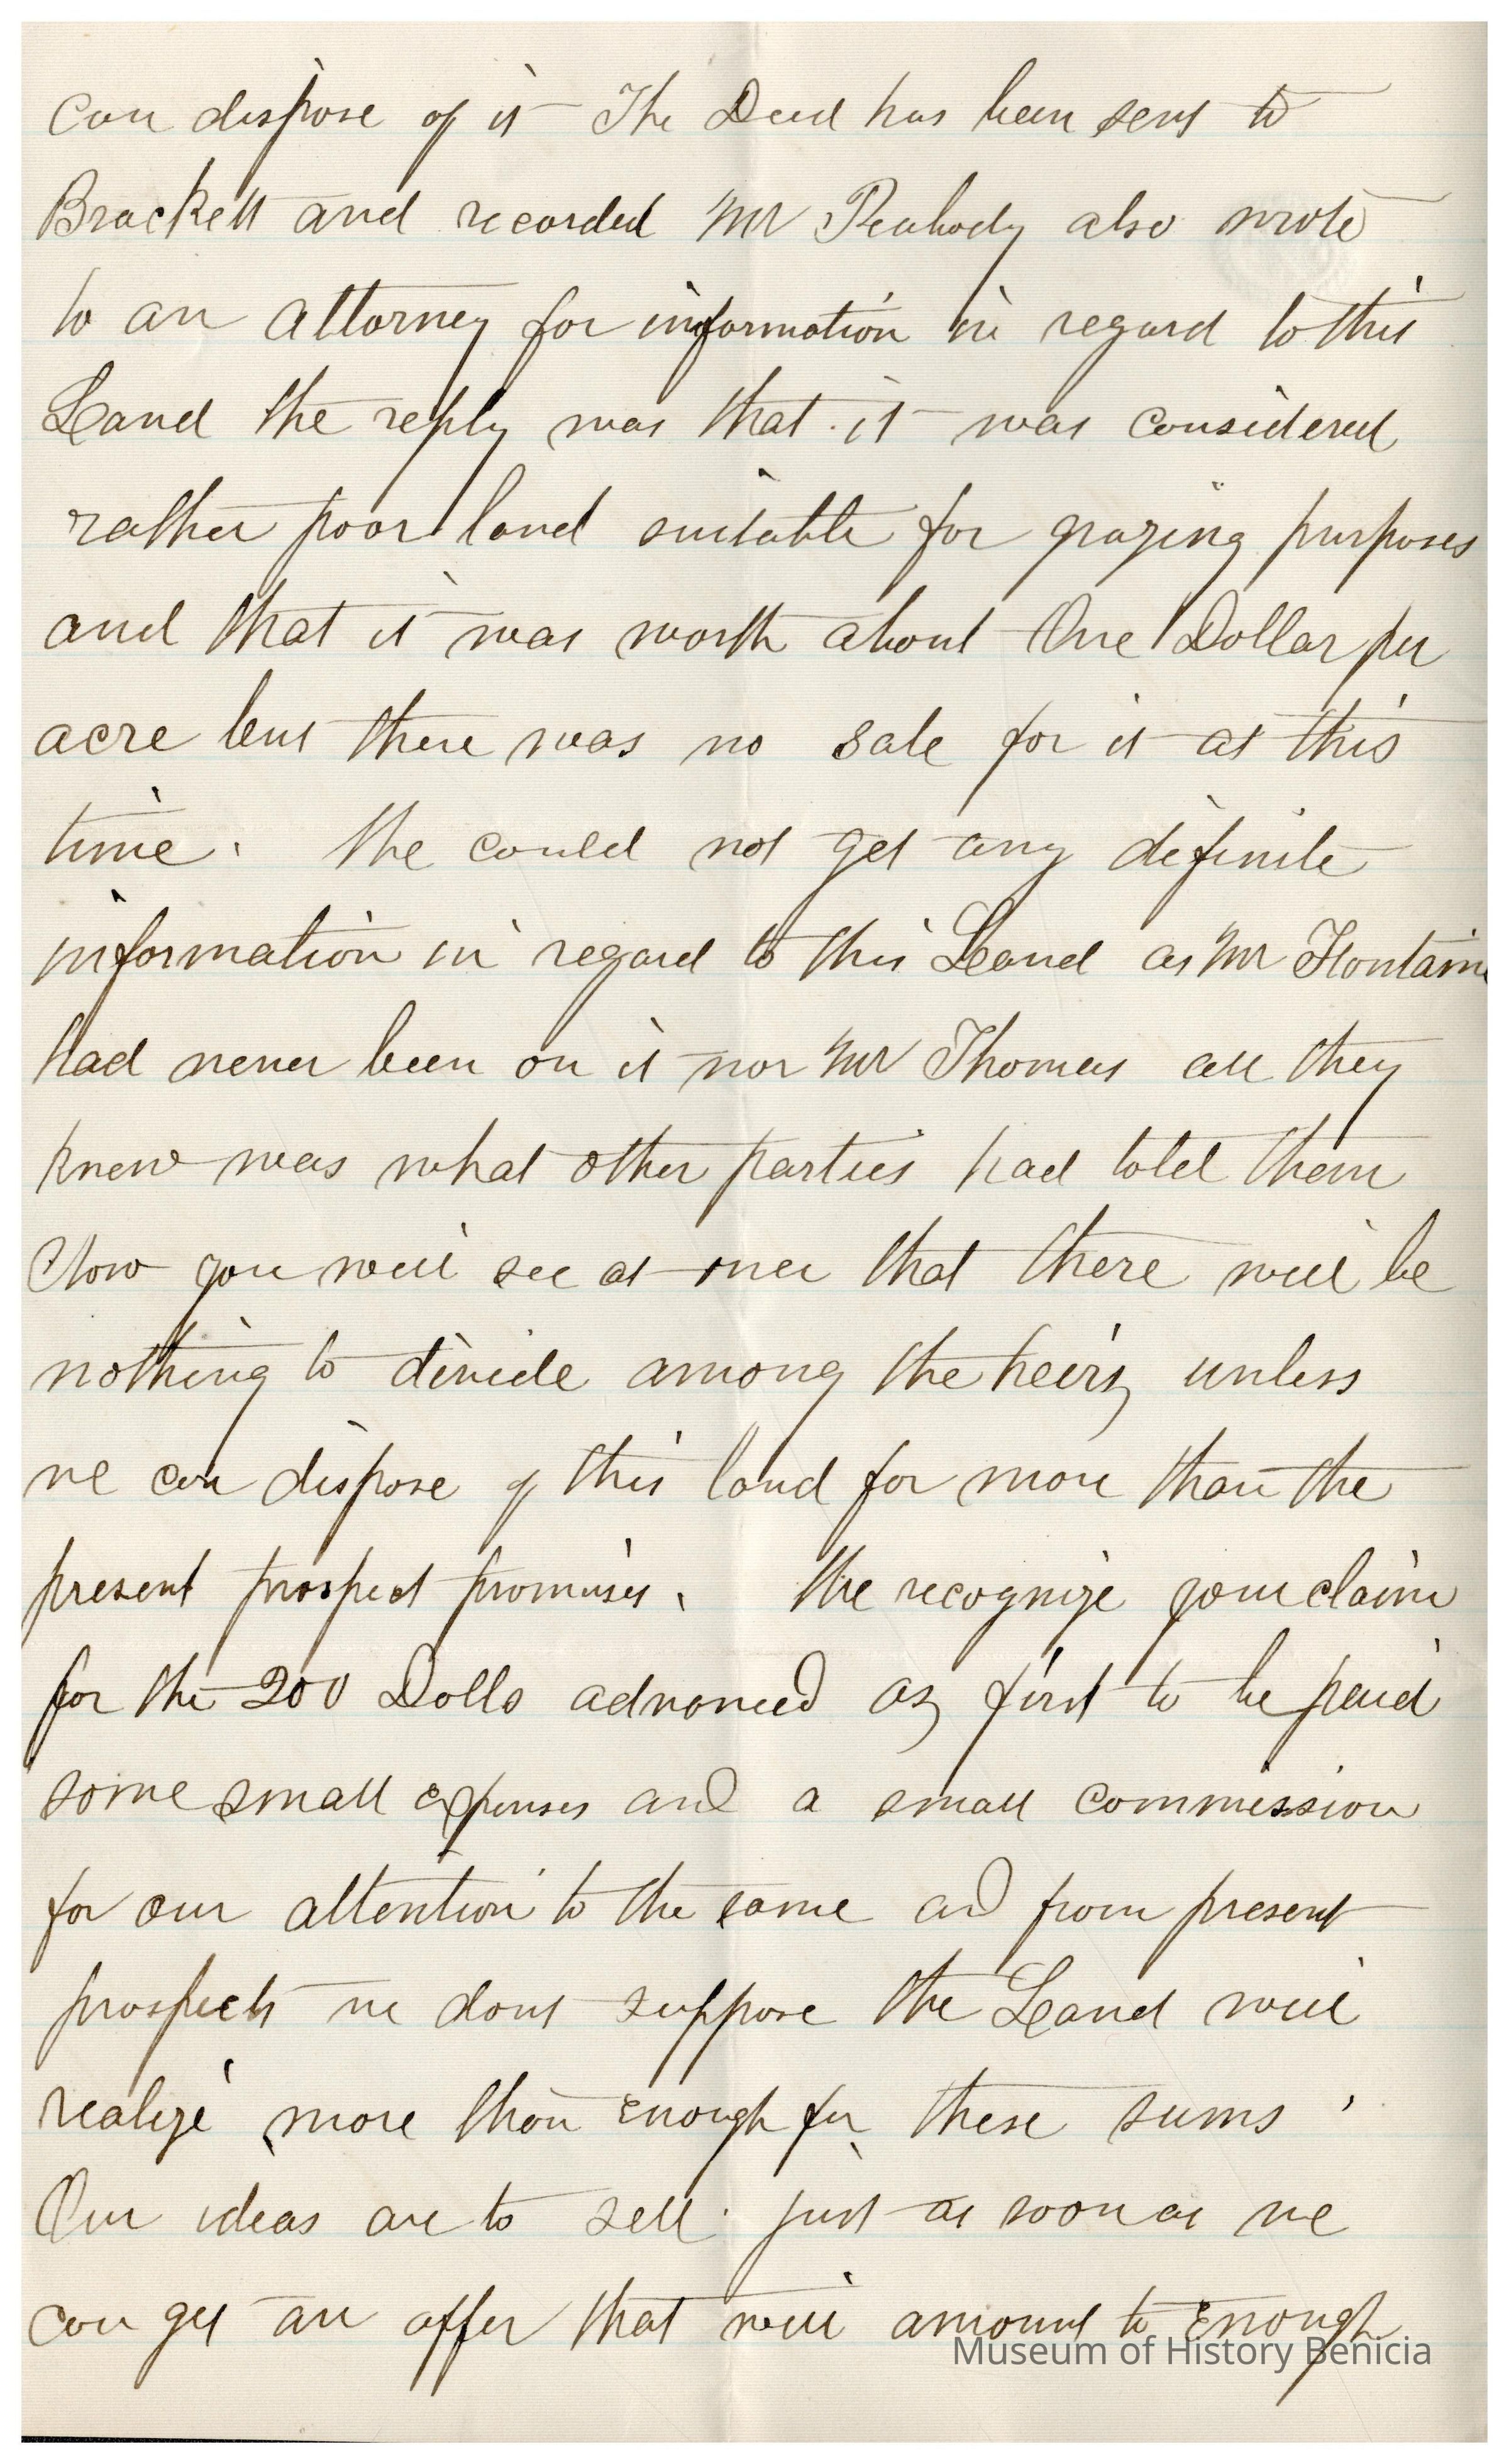 can dispose of it The Deed has been sent to
Brackett and recorded Mr Peabody also wrote
to an attorney for information in regard to this
Land the reply was that it was considered
rather poor land suitable for grazing purposes
and that it was worth about One Dollar per
acre but there was no sale for it at this
time. We could not get any definite
information in regard to this Land as Mr Flontaine
had never been on it nor Mr Thomas all they
knew was what other parties had told them
Now you will see at once that there will be
nothing to divide among the heirs unless
we can dispose of this land for more than the
present prospect promises. We recognize your claim
for the 200 Dolls advanced as first to be paid
some small expenses and a small commission
for our attention to the same and from present
prospects we dont suppose the Land will
realize more than enough for these sums.
Our ideas are to sell just as soon as we
can get an offer that will amount to enough
Museum of History Benicia